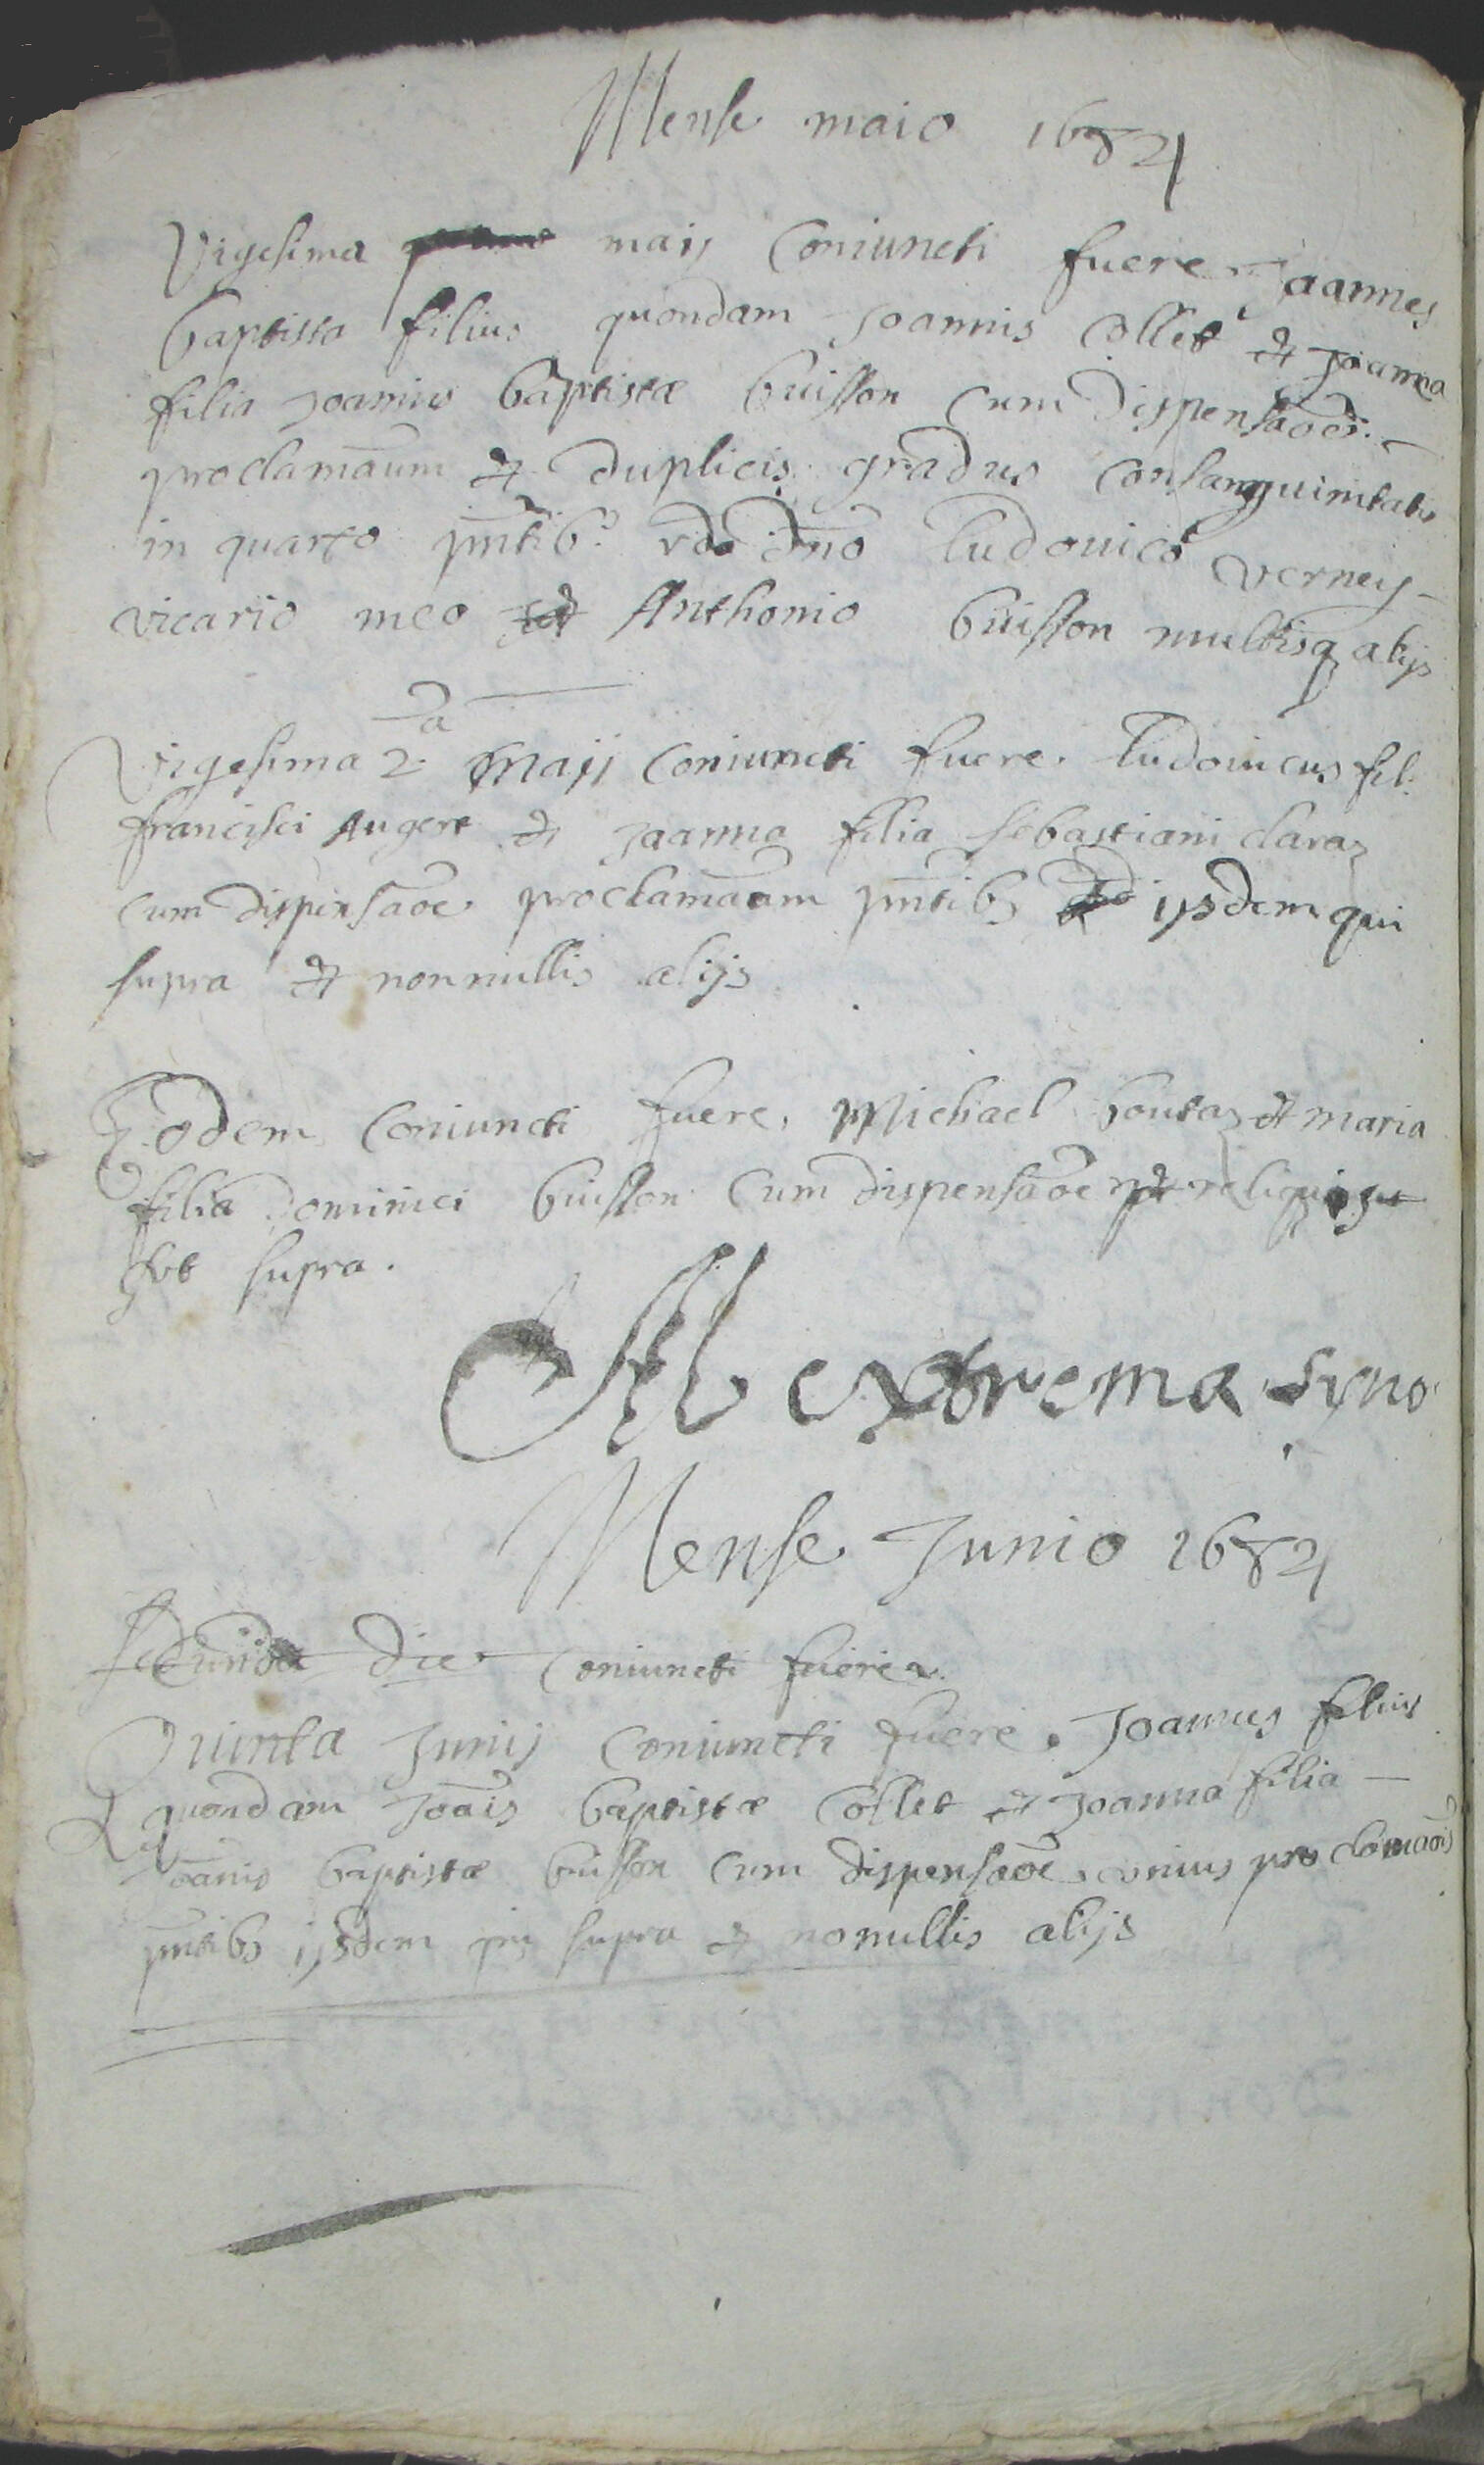 Mense maio 1684
Vigesima maij Coniuncti fuere Joannes
baptista filius quondam Joannis Collet & Joanna
filia Joannis baptistæ buisson cum dispensaōe
proclamaūm & duplicis gradus consanguinitatis
in quarto pn̄tib. rdo dn̄o Ludouico verney
vicario meo & Anthonio buisson multisq alijs
Vigesima 2.a Maij Coniuncti fuere. Ludouicus fil.
francisci Augert & Joanna filia sebastiani claraz
cum dispensaōe proclamaūm pn̄tibs ijsdem qui
supra & nonnullis alijs
Eodem Coniuncti fuere, Michael & maria
filia Dominici buisson cum dispensaōe & reliquis
ut supra.
Ab extrema syno
Mense Junio 1684
secunda die Coniuncti fuere
Quinta Junij Coniuncti fuere. Joannes filius
quondam Joāis baptistæ Collet & Joanna filia
Joānis baptistæ buisson cum dispensaōe unius proclamaōis
pn̄tibs ijsdem qui supra & nonullis alijs